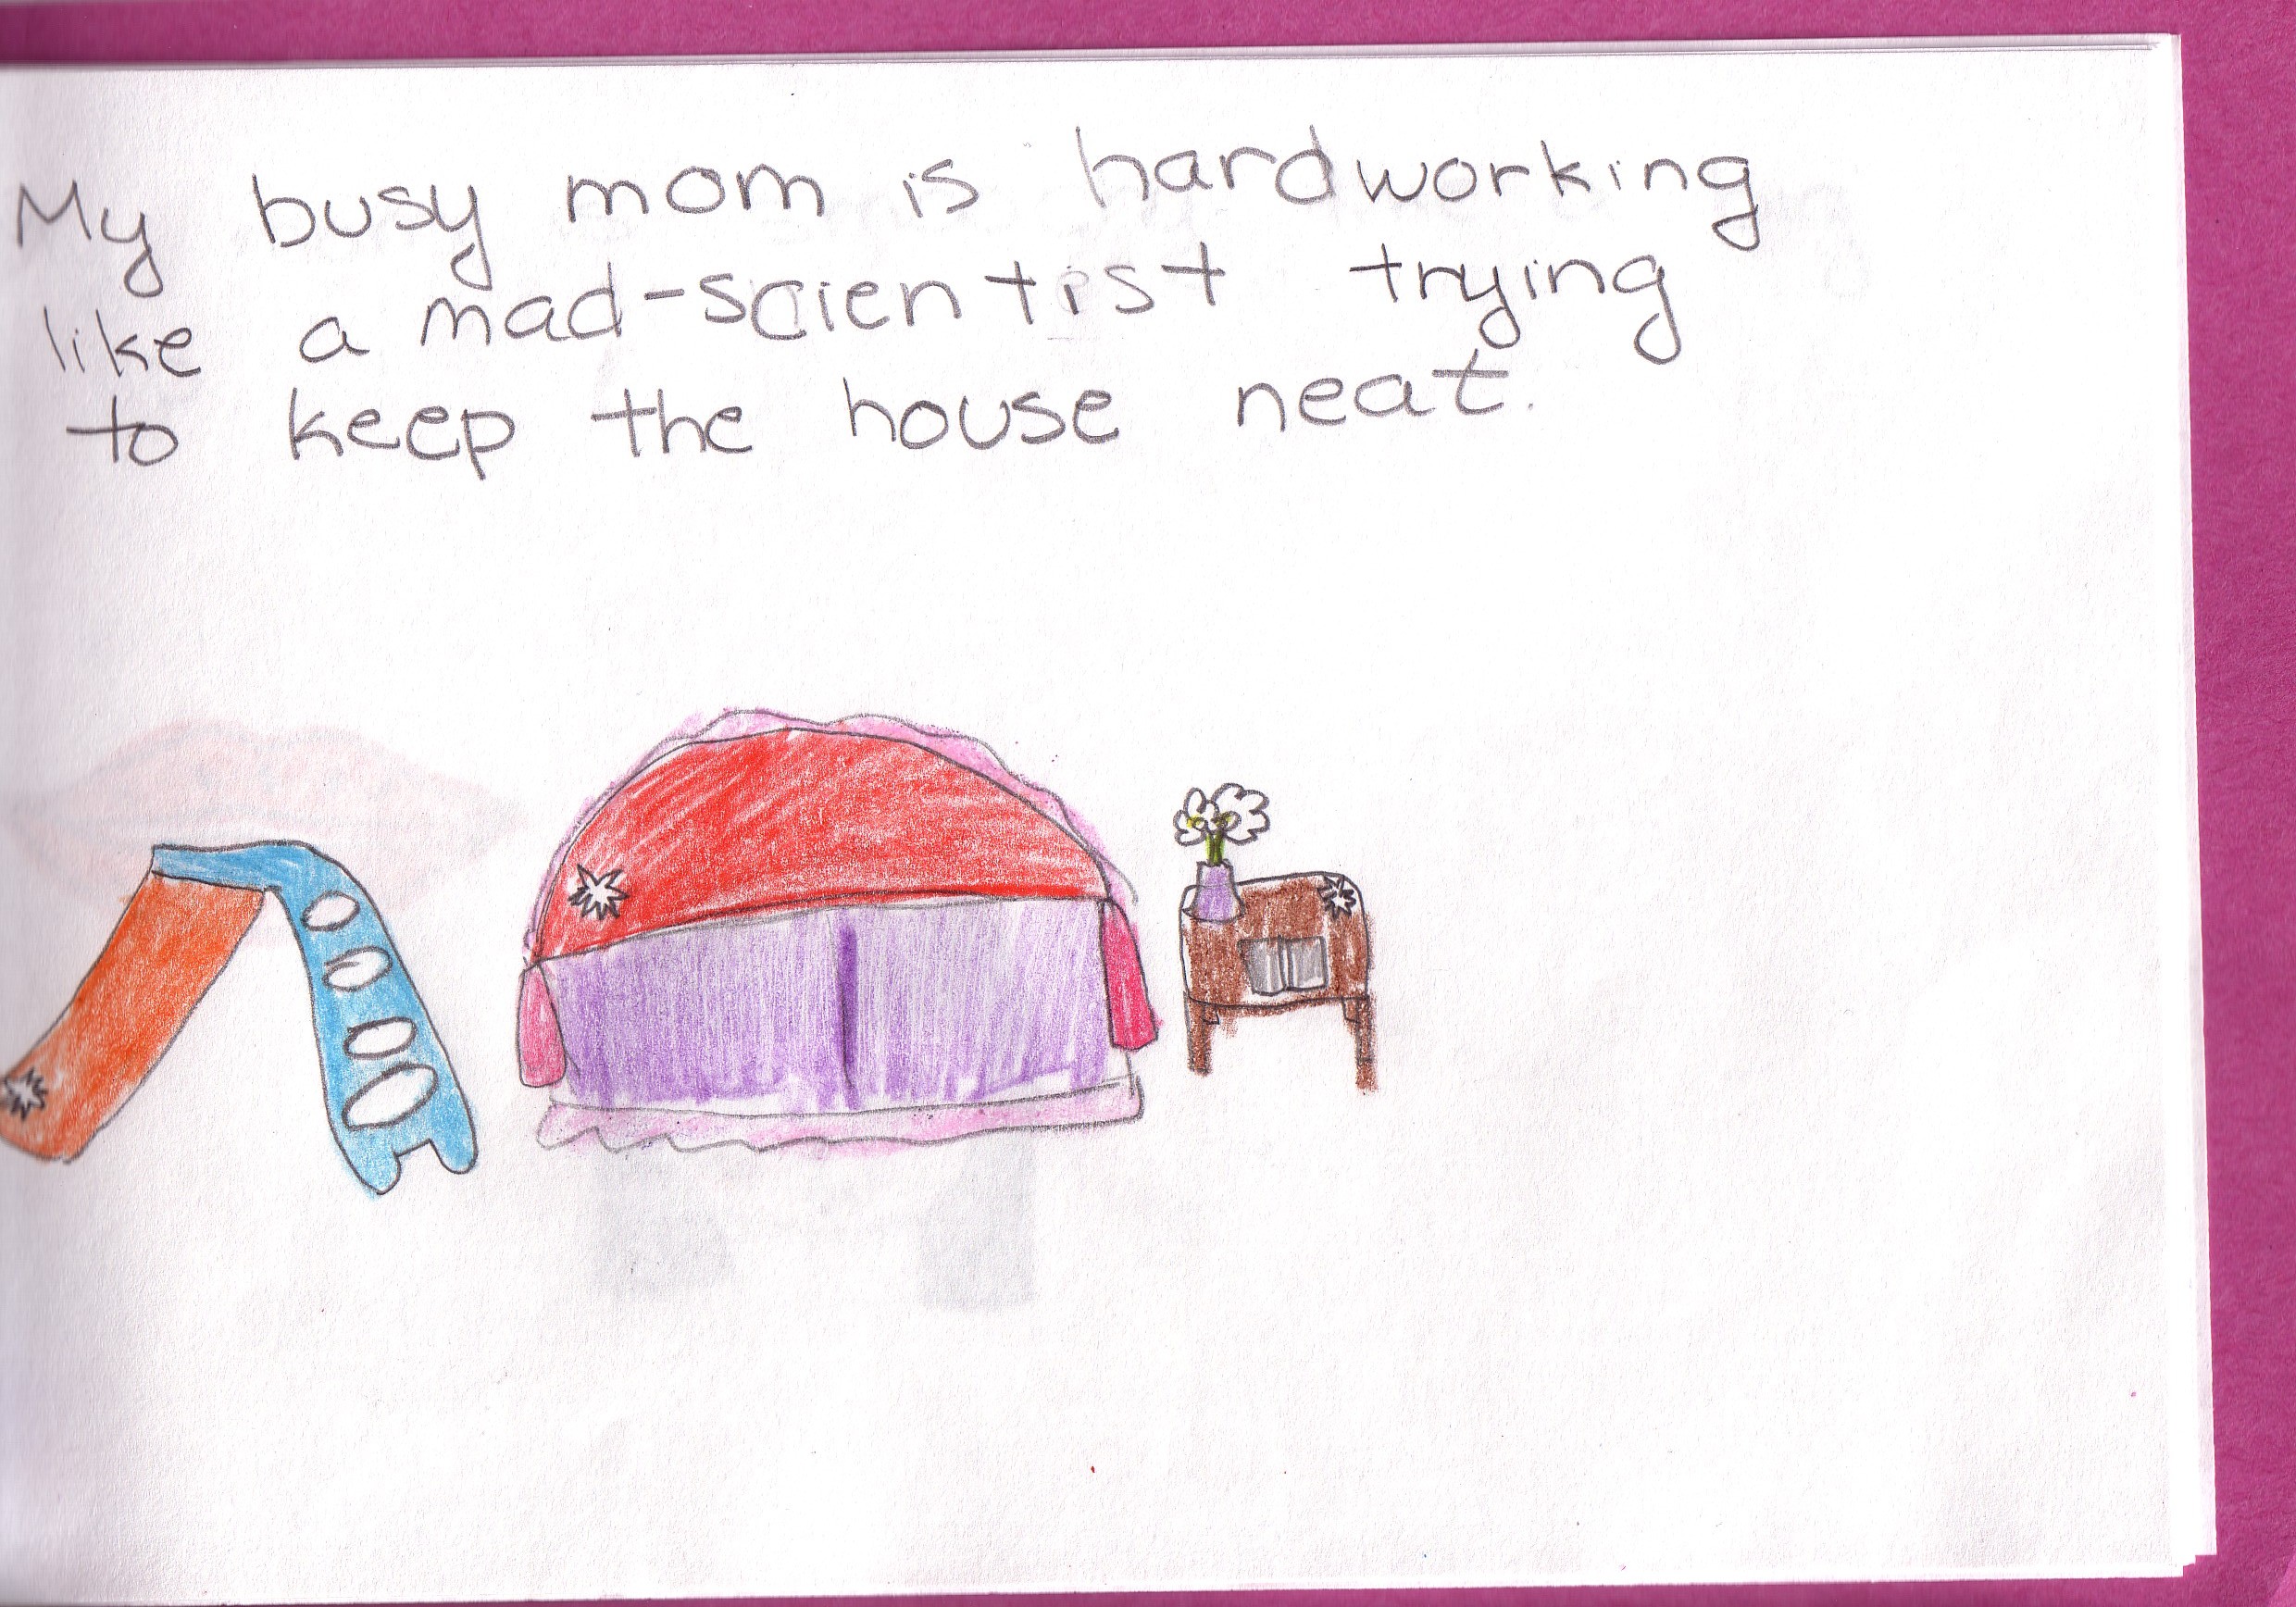 My busy mom is hardworking
like a mad-scientist trying
to keep the house neat.